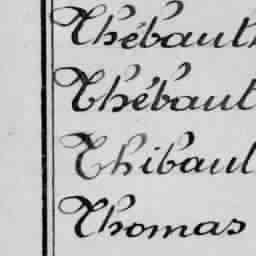 Thébauth
Thébaut
Thibaul
Thomas